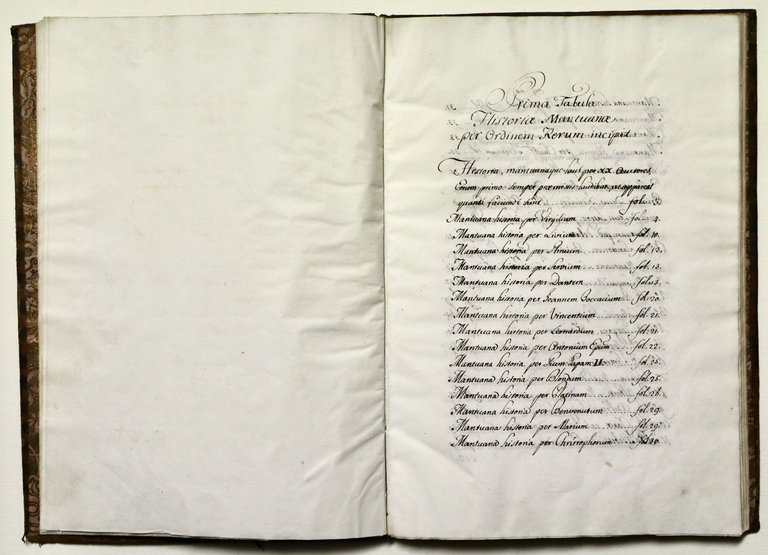 Prima Tabula
Historiæ Mantuanæ
per Ordinem Rerum incipit
Historia, mantuana per XX. Auctores
Eorum primo semper præmissis laudibus, ut appareat
quanti faciundi sint fol.
Mantuana historia per Virgilium fol. 4.
Mantuana historia per fol. 10.
Mantuana historia per fol. 12.
Mantuana historia per Servium fol. 13.
Mantuana historia per Dantem fol. 13.
Mantuana historia per Joannem Boccacium fol. 20.
Mantuana historia per Vincentium fol. 21.
Mantuana historia per Leonardum fol. 21.
Mantuana historia per Antonium Epum fol. 22.
Mantuana historia per Pium Papam II fol. 25.
Mantuana historia per Blondum fol. 25.
Mantuana historia per Platinam fol. 28.
Mantuana historia per Benvenutum fol. 29.
Mantuana historia per Marium fol. 29.
Mantuana historia per Christophorum fol. 30.